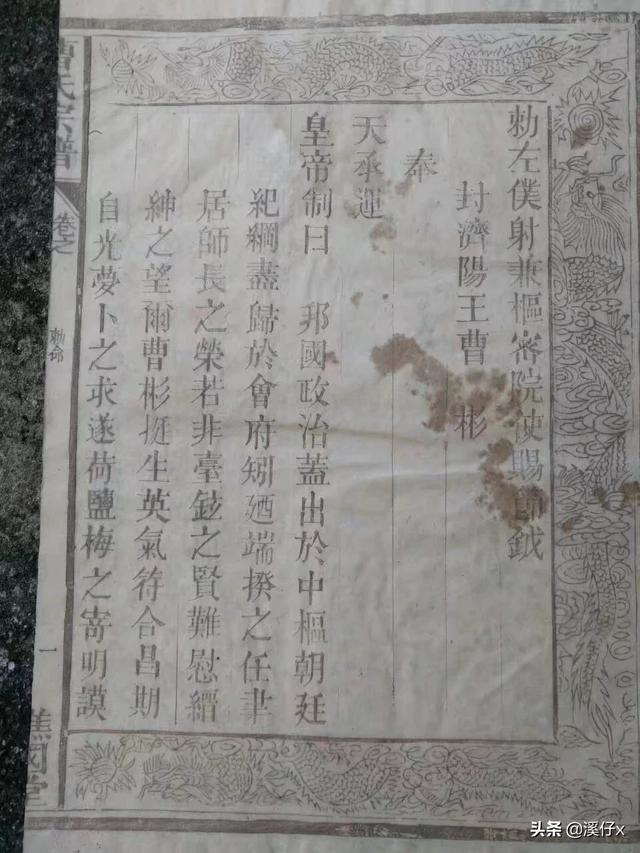 勅左僕射兼樞密院使賜節鉞
封濟陽王曹 彬
奉
天承運
皇帝制曰 邦國政治蓋出於中樞朝廷
紀綱盡歸於會府矧廼端揆之任聿
居師長之榮若非臺鉉之賢難慰縉
紳之望爾曹彬挺生英氣符合昌期
自光夢卜之求遂荷鹽梅之寄明謨
曹氏宗譜
卷之
勅命
一
譙國堂
头条 @溪仔x